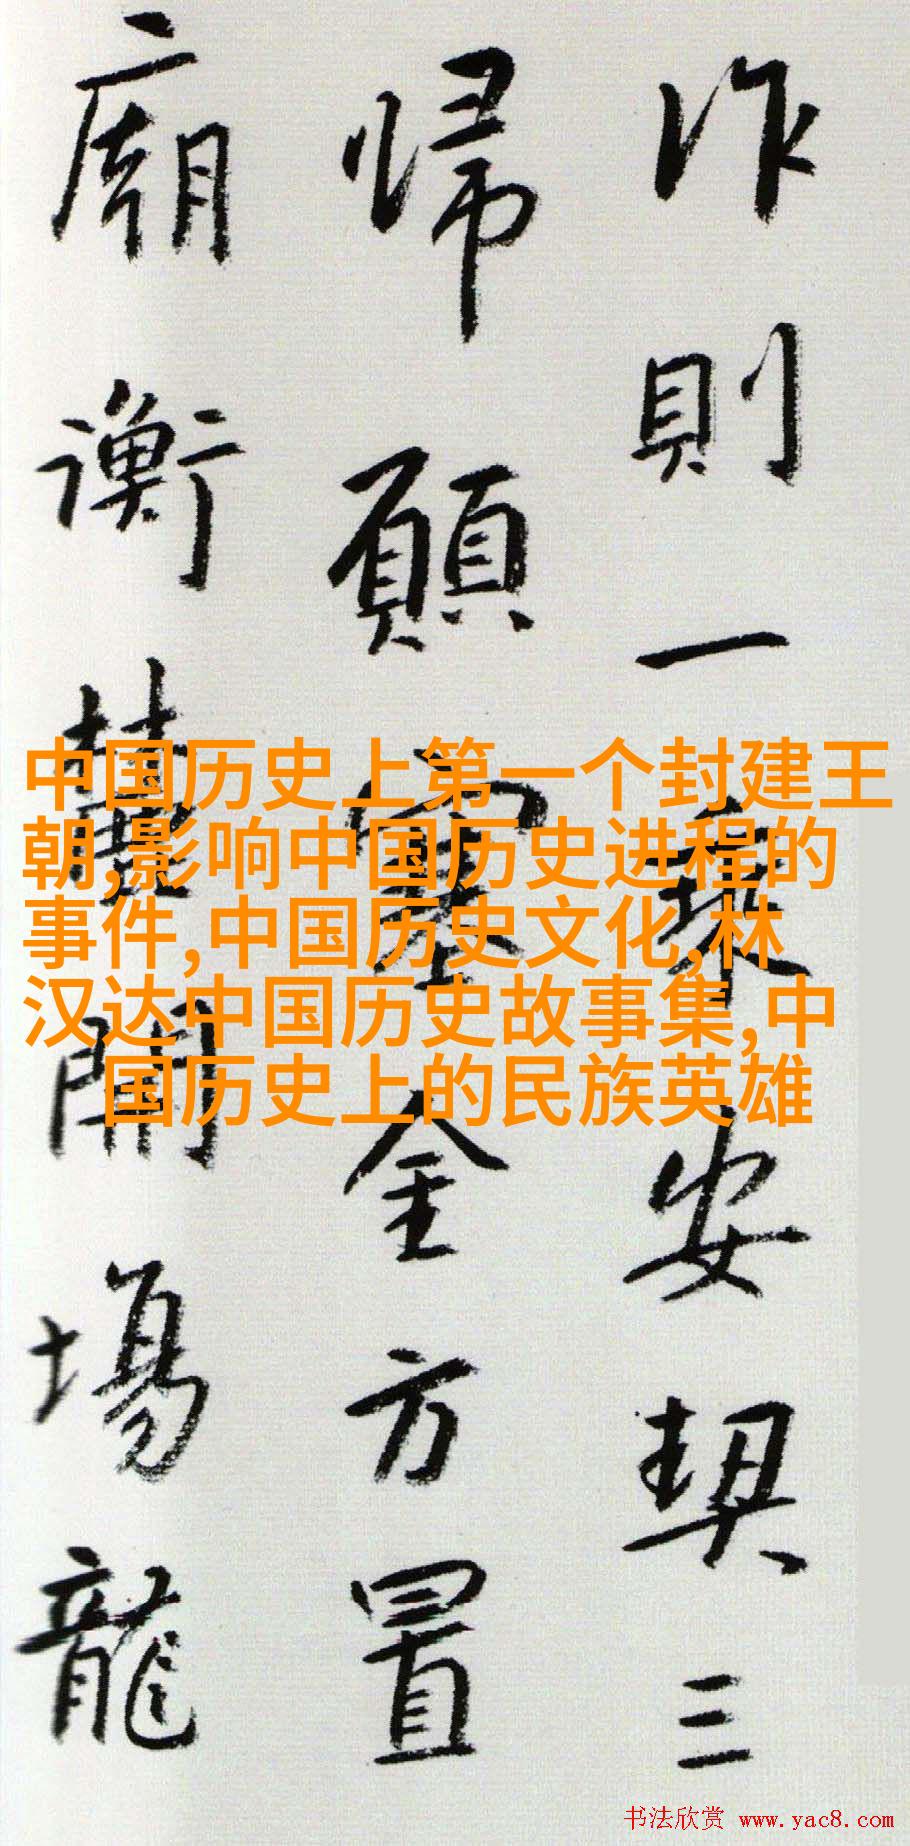 作則一乘安契三
帰願全方置
廟衡開場龍
中国历史上第一个封建王
朝,影响中国历史进程的
事件,中国历史文化,林
汉达中国历史故事集,中
国历史上的民族英雄
书法欣赏 www.yac8.com